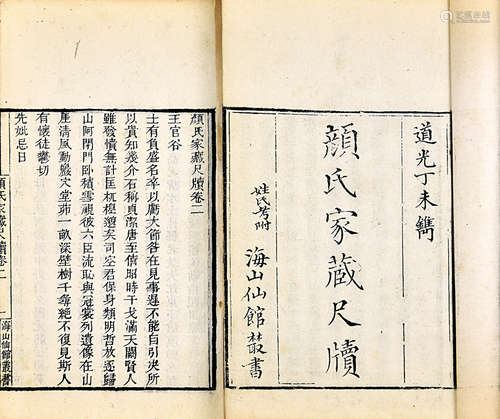 道光丁未鐫
顔氏家藏尺牘
姓氏考附
海山仙館叢書
顔氏家藏尺牘卷二
王官谷
士有負盛名卒以虧大節咎在見事遲不能自引決所
以貴知幾介石稱貞潔唐至僖昭時干戈滿天闕賢人
雖發憤無計匡杌隉邈矣司空君保身類明哲放逐歸
山阿閉門臥積雪視彼六臣流恥與冠裳列遺像在山
崖清風動巖穴堂茆一畝深壁樹千尋絕不復見斯人
有懷徒鬱切
先妣忌日
顔氏家藏尺牘卷二
一
海山仙館叢書